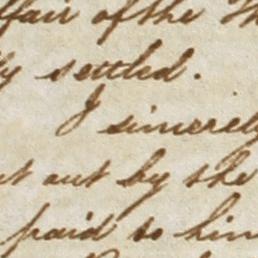 ffair of the Th
ly settled.
I sincerely
t out by the
paid to him